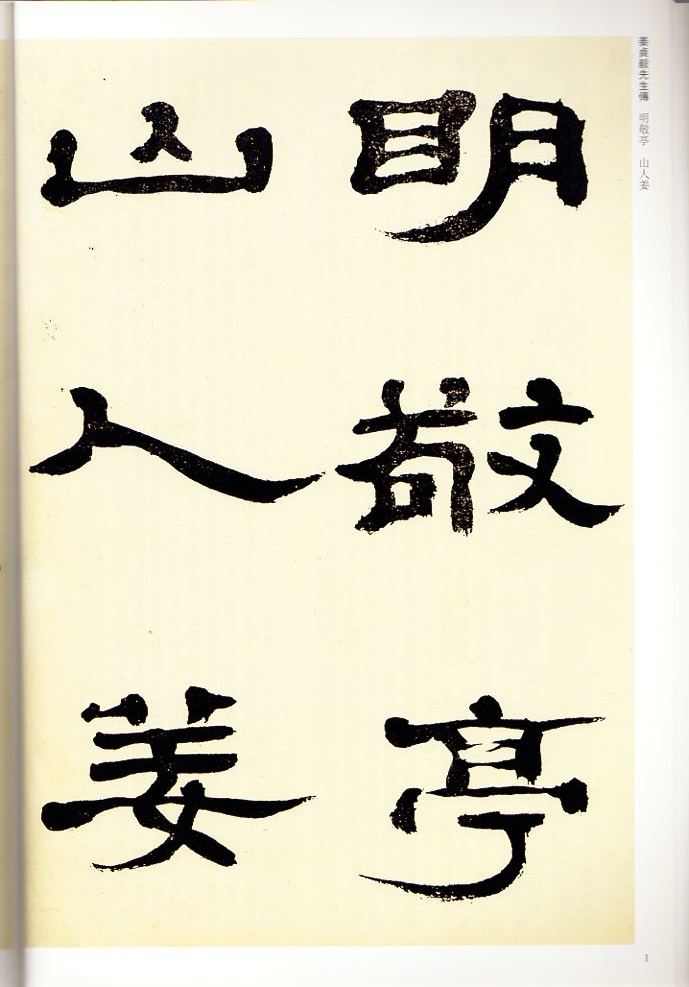 姜貞毅先生傳 明敬亭 山人姜
明敬亭
山人姜
1